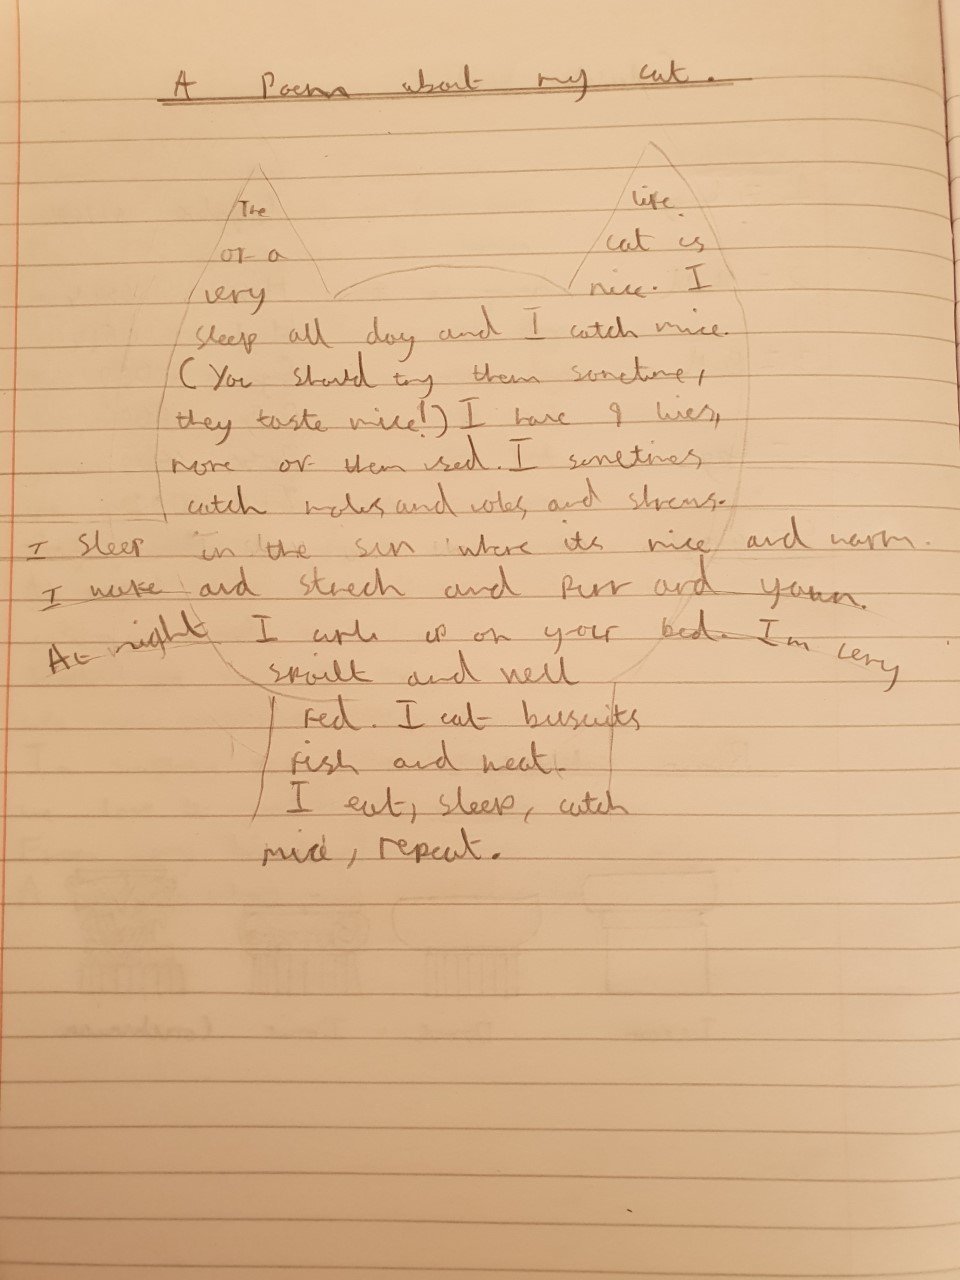 A Poem about my cat.
The life
of a cat is
very nice. I
sleep all day and I catch mice.
(You should try them sometime,
they taste nice!) I have 9 lives,
none of them used. I sometimes
catch moles, and voles, and shrews.
I sleep in the sun where its nice and warm.
I wake and strech and purr and yawn.
At night I curl up on your bed. I'm very
spoilt and well
fed. I eat buscuits
fish and meat.
I eat, sleep, catch
mice, repeat.